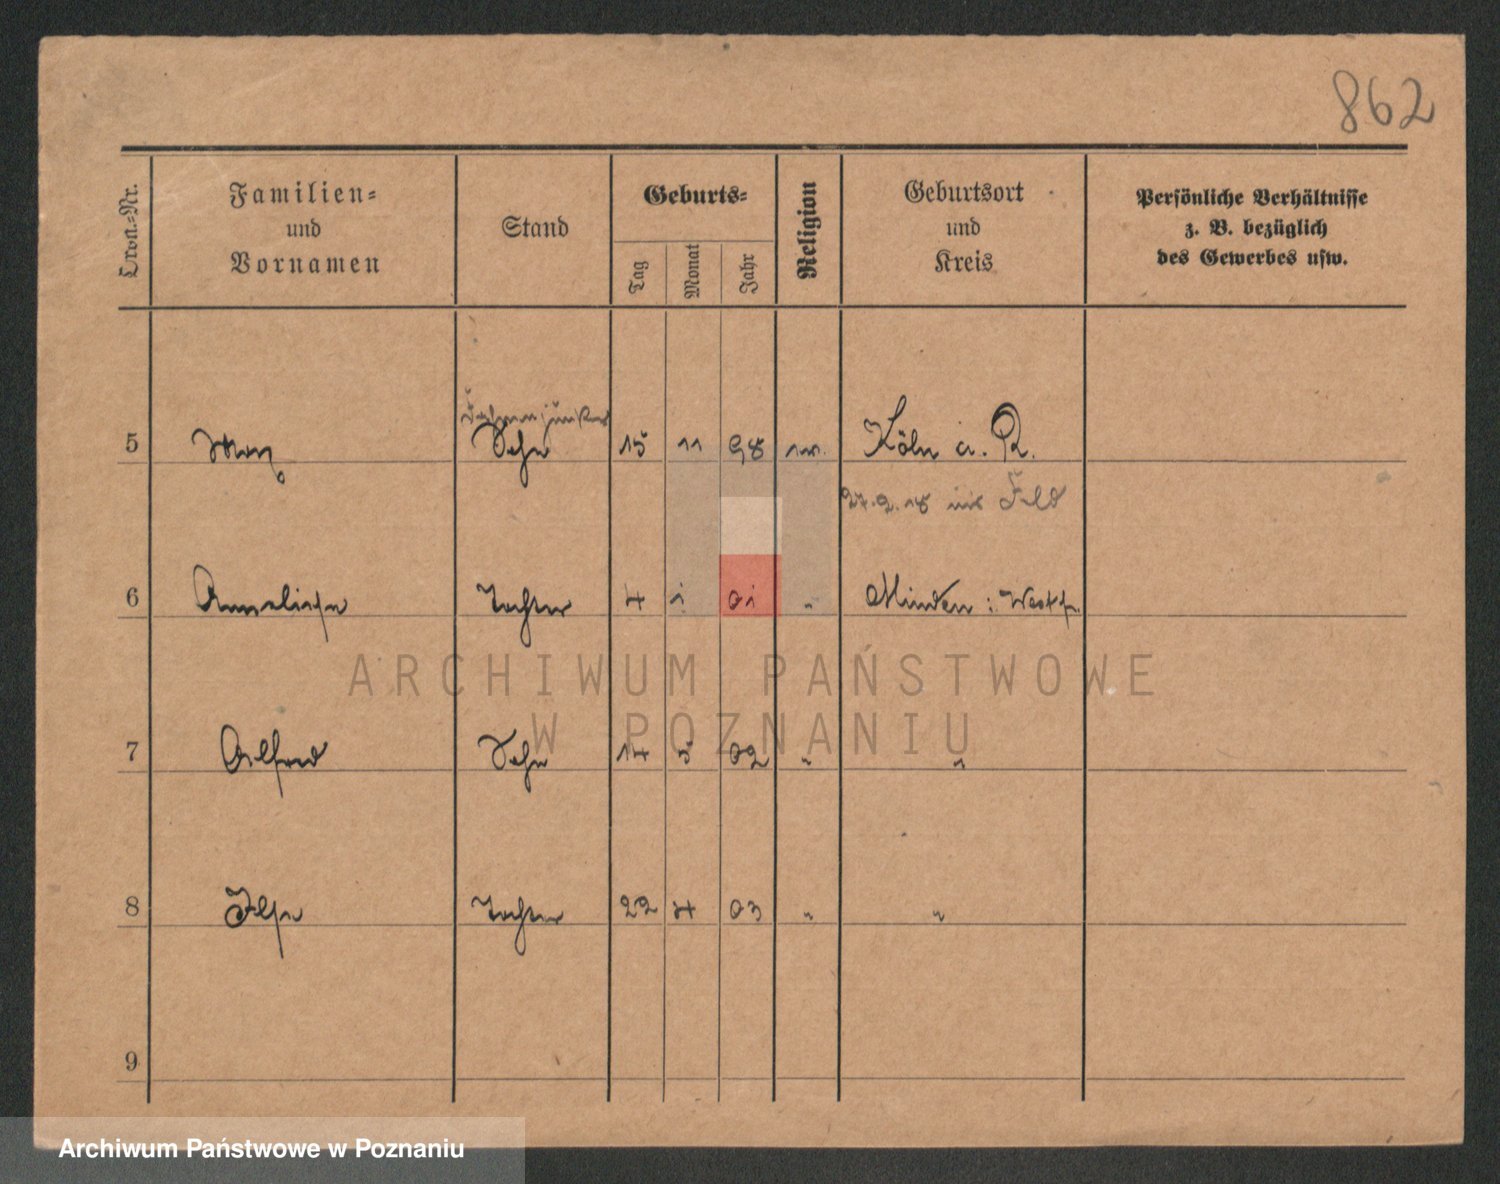 862
Ordn.-Nr.
Familien-
und
Vornamen
Stand
Geburts-
Tag
Monat
Jahr
Religion
Geburtsort
und
Kreis
Persönliche Verhältnisse
z. B. bezüglich
des Gewerbes usw.
Fahnenjunker
5 Max Sohn 15 11 98 ev. Köln a. R.
27.2.18 ins Feld
6 Anneliese Tochter 4 1 01 " Minden i. Westf.
ARCHIWUM PAŃSTWOWE
W POZNANIU
7 Alfred Sohn 14 5 02 " "
8 Ilse Tochter 22 4 03 " "
9
Archiwum Państwowe w Poznaniu